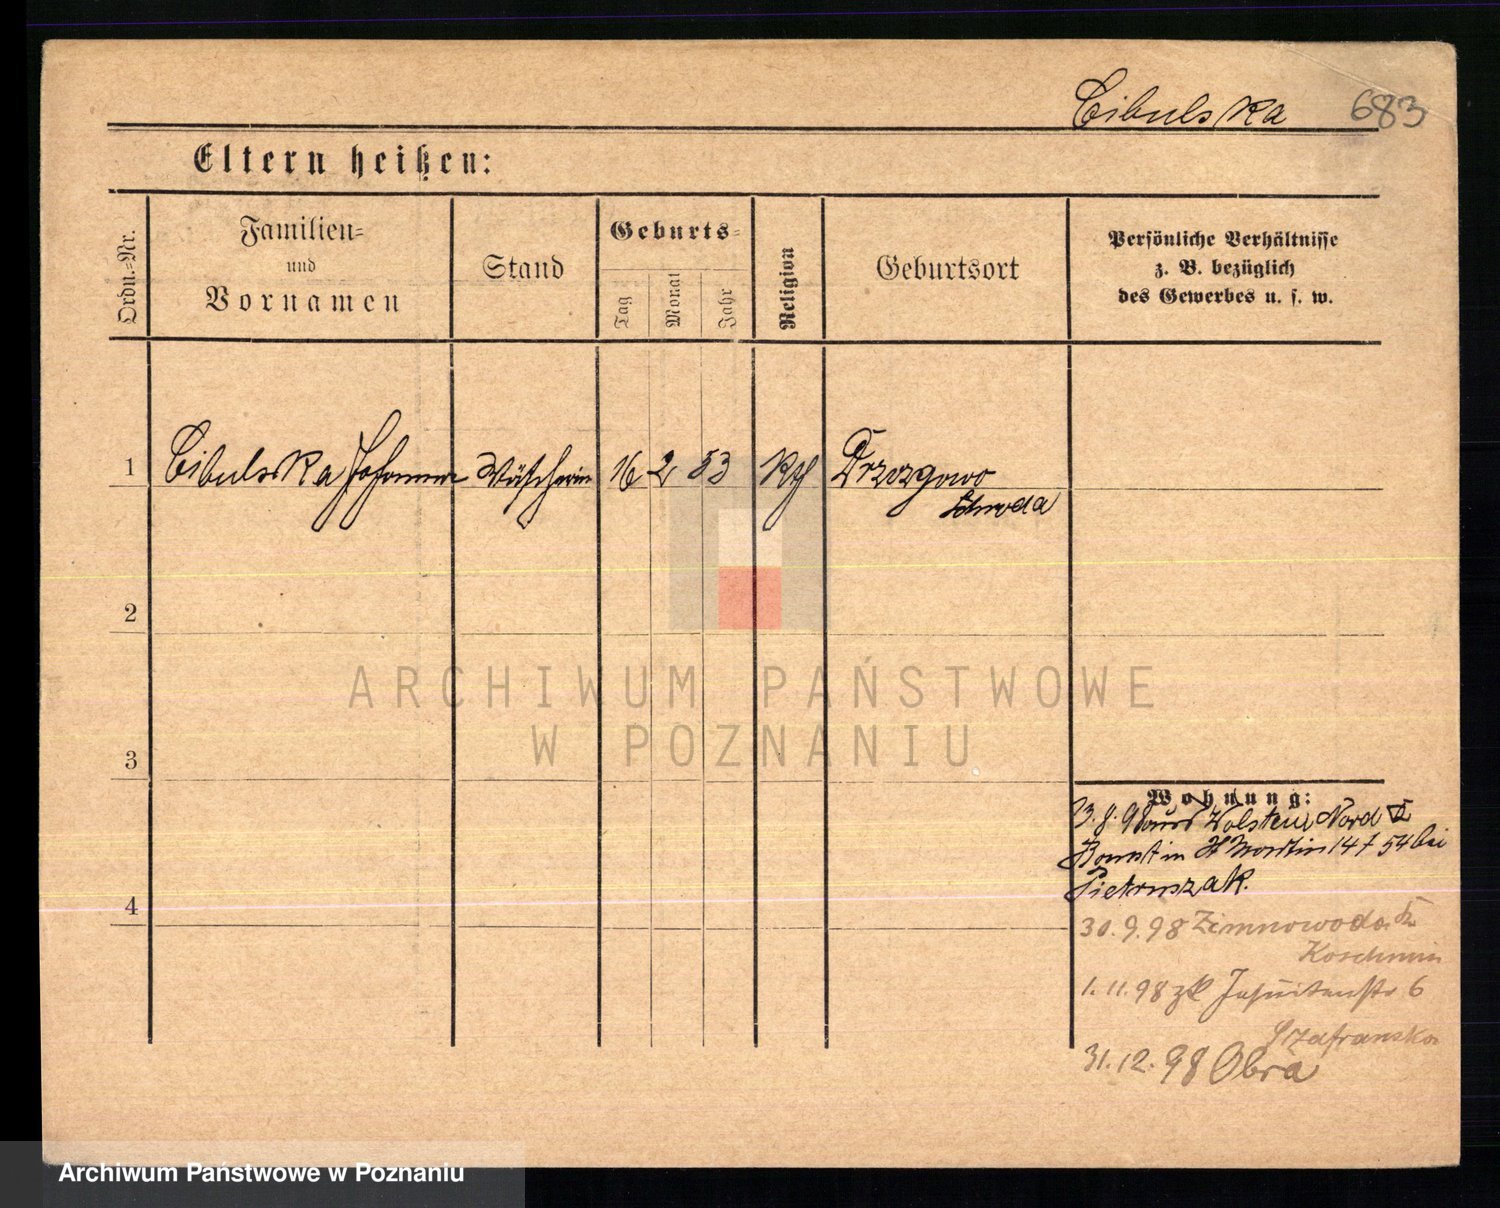 Cibulska 683
Eltern heißen:
Ordn.-Nr.
Familien-
und
Vornamen
Stand
Geburts-
Tag
Monat
Jahr
Religion
Geburtsort
Persönliche Verhältnisse
z. B. bezüglich
des Gewerbes u. s. w.
1 Cibulska Johanna Wäscherin 16 2 53 Kth Drzozgowo
Schroda
2
ARCHIWUM PAŃSTWOWE
W POZNANIU
3
Wohnung:
3.8.98 aus Wolstein Nord
Bomst in St Martin 147 54 bei
Pietruszak.
4
30.9.98 Zimnowoda Kr
Koschmin
1.11.98 zk Jesuitenstr 6
Szafranska
31.12.98 Obra
Archiwum Państwowe w Poznaniu